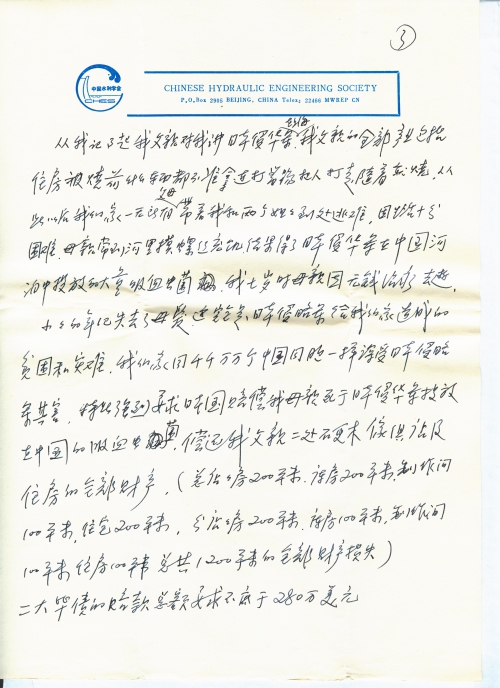 ③
中国水利学会
CHES
CHINESE HYDRAULIC ENGINEERING SOCIETY
P.O.Box 2905 BEIJING, CHINA Telex: 22466 MWREP CN
上海
从我记事起我父亲对我讲日军侵华来我父亲的全部产业包括
住房被烧前什么东西都不准拿连打带把人打走随着点烧。从
父母
此以后我们家一无所有带着我和两个姐姐到处逃难,因生活十分
困难,母亲常到河里摸螺丝充饥,结果得了日军侵华军在中国河
沟中投放的大量吸血虫菌,我七岁时母亲因无钱治疗去逝。
小小的年纪失去了母爱,这完全是日军侵略者给我们家造成的
贫困和灾难,我们家同千千万万个中国同胞一样深受日军侵略
军其害,特此强烈要求日本国赔偿我母亲死于日军侵华军投放
菌
在中国的吸血虫,偿还我父亲二处硬木傢俱店及
住房的全部财产,(总店营房200平米,库房200平米,制作间
100平米,住宅200平米,分店营房200平米,库房100平米,制作间
100平米,住房100平米 总共1200平米的全部财产损失)
二大笔债的赔款总额要求不底于280万美元